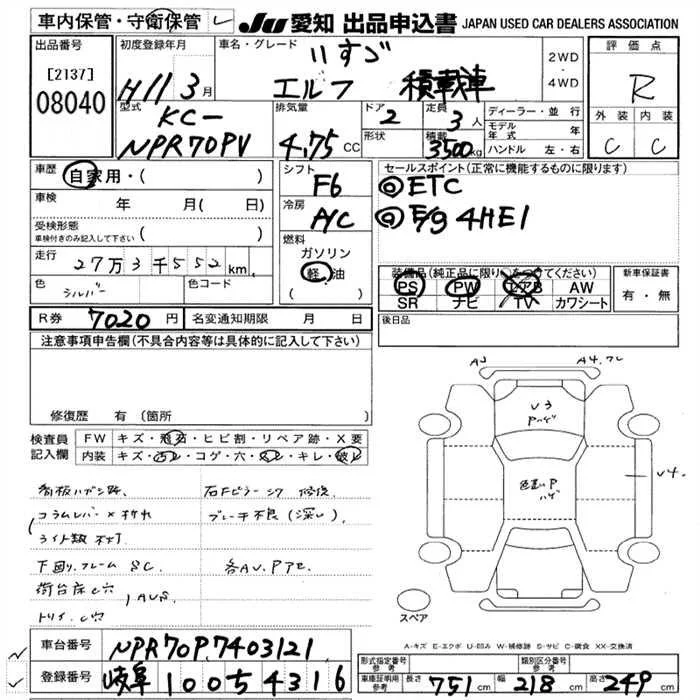 車内保管・守衛保管
JU 愛知 出品申込書 JAPAN USED CAR DEALERS ASSOCIATION
出品番号
[2137]
08040
初度登録年月
H11 3月
車名・グレード
いすゞ
エルフ 積載車
2WD
・
4WD
評価点
R
型式
KC-
NPR70PV
排気量
4.75 CC
ドア
2
形状
定員
3人
積載
3500kg
ディーラー・並行
モデル年式 年
ハンドル 左・右
外装 内装
C C
車歴
自家用・( )
車検
年 月( 日)
受検形態
車検付きのみ記入して下さい ( )
走行
27万3千552km
色
シルバー
色コード
シフト
F6
冷房
A/C
燃料
ガソリン
軽油
( )
セールスポイント(正常に機能するものに限ります)
◎ETC
◎E/g 4HE1
装備品(純正品に限り○をつけてください)
PS PW エアB AW
SR ナビ TV カワシート
新車保証書
有・無
R券 7020円 名変通知期限 月 日
後日品
注意事項申告欄(不具合内容等は具体的に記入して下さい)
修復歴 有(箇所
検査員
記入欄
FW キズ・飛石・ヒビ割・リペア跡・X要
内装 キズ・汚レ・コゲ・穴・スレ・キレ・破レ
看板ハガシ跡、
コラムレバー×折れ
下回り、フレーム SC、
荷台床C穴、AUS
ブレーキ不良(深い)
A3
A4.
U3
Pハゲ
色違いP
ハゲ
U4、
スペア
A-キズ E-エクボ U-凹み W-補修跡 S-サビ C-腐食 XX-交換済
車台番号 NPR70P.7403121
登録番号 岐阜 100ち4316
形式指定番号
参考
類別区分番号
参考
車庫証明用
参考
長さ 751cm 幅 218cm 高さ 249cm